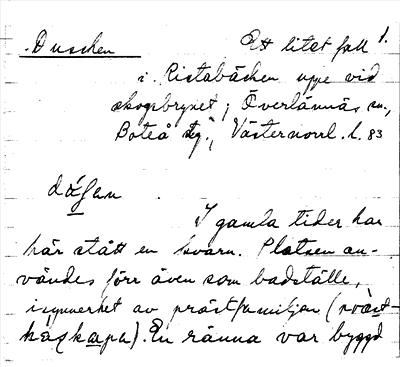 Duschen Ett litet fall 1.
i Ristabäcken uppe vid
skogsbrynet; Överlännäs sn.,
Boteå tg., Västernorrl. l. 83
I gamla tider har
här stått en kvarn. Platsen an-
vändes förr även som badställe,
isynnerket av prästfamiljen
En ränna var byggd